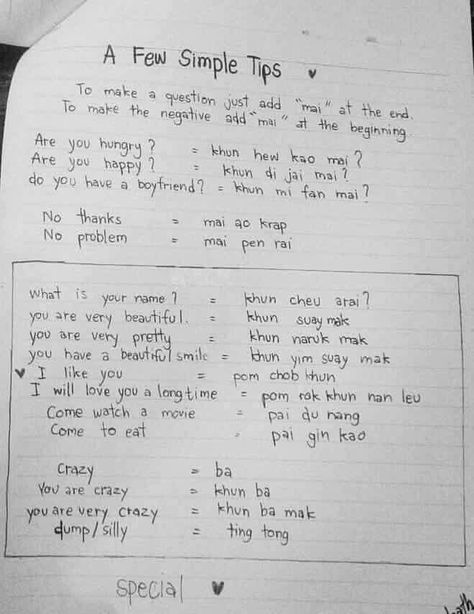 A Few Simple Tips ♥
To make a question just add "mai" at the end.
To make the negative add "mai" at the beginning
Are you hungry? = khun hew kao mai?
Are you happy? = khun di jai mai?
do you have a boyfriend? = khun mi fan mai?
No thanks = mai ao krap
No problem = mai pen rai
what is your name? = khun cheu arai?
you are very beautiful. = khun suay mak
you are very pretty = khun naruk mak
you have a beautiful smile = khun yim suay mak
♥ I like you = pom chob khun
I will love you a longtime = pom rak khun nan leu
Come watch a movie = pai du nang
Come to eat = pai gin kao
Crazy = ba
You are crazy = khun ba
you are very crazy = khun ba mak
dump/silly = ting tong
special ♥